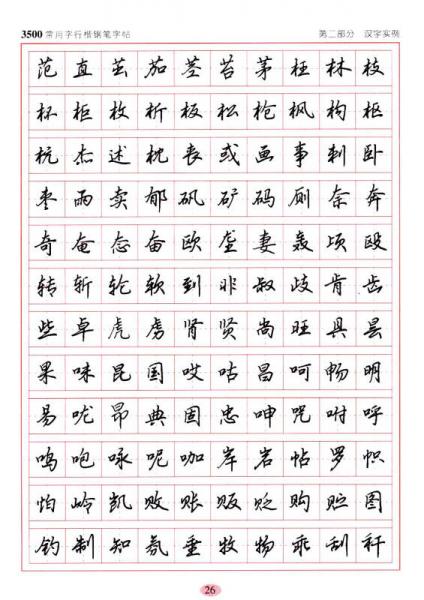 3500常用字行楷钢笔字帖 第二部分 汉字实例
范 直 茁 茄 茎 苔 茅 枉 林 枝
杯 柜 枚 析 板 松 枪 枫 构 枢
杭 杰 述 枕 丧 或 画 事 刺 卧
枣 雨 卖 郁 矾 矿 码 厕 奈 奔
奇 奄 态 奋 欧 垄 妻 轰 顷 殴
转 斩 轮 软 到 非 叔 歧 肯 齿
些 卓 虎 虏 肾 贤 尚 旺 具 昙
果 味 昆 国 哎 咕 昌 呵 畅 明
易 咙 昂 典 固 忠 呻 咒 咐 呼
鸣 咆 咏 呢 咖 岸 岩 帖 罗 帜
怕 岭 凯 败 账 贩 贬 购 贮 图
钓 制 知 氛 垂 牧 物 乖 刮 秆
26